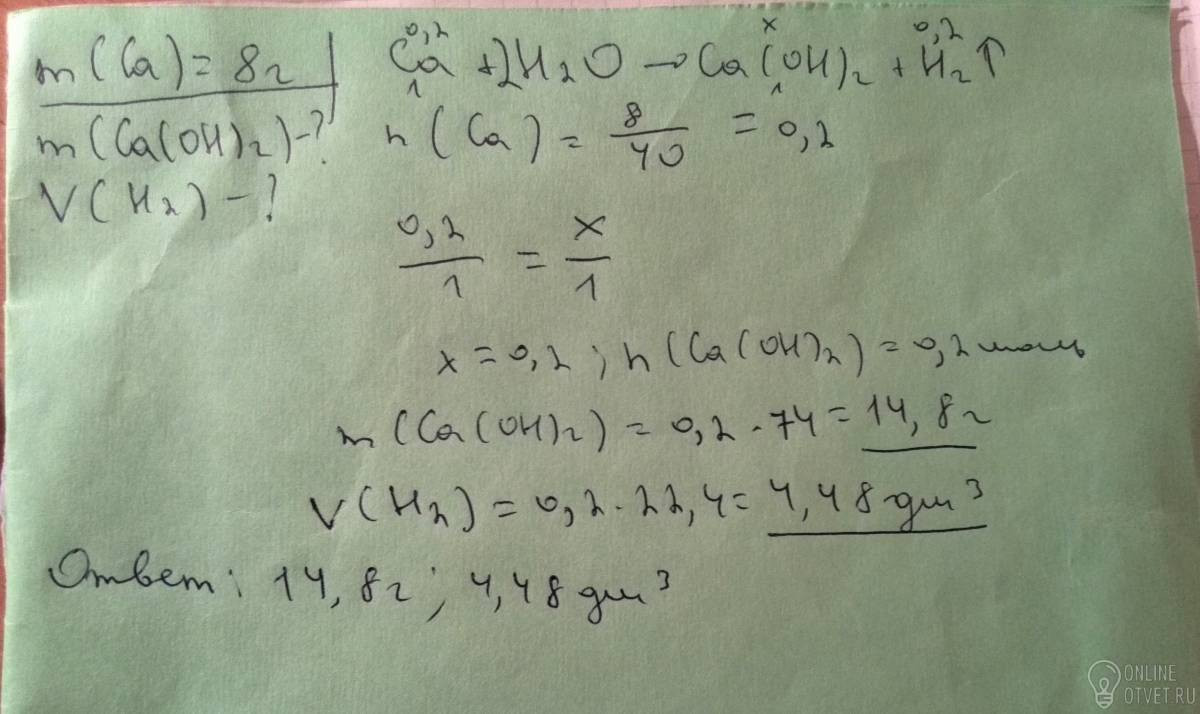 m(Ca) = 8г
m(Ca(OH)₂) - ?
V(H₂) - ?
0,2 x 0,2
Ca + 2H₂O → Ca(OH)₂ + H₂↑
1 1
n(Ca) = 8/40 = 0,2
0,2/1 = x/1
x = 0,2 ; n(Ca(OH)₂) = 0,2 моль
m(Ca(OH)₂) = 0,2 · 74 = 14,8г
V(H₂) = 0,2 · 22,4 = 4,48 дм³
Ответ: 14,8г; 4,48 дм³
ONLINE
OTVET.RU